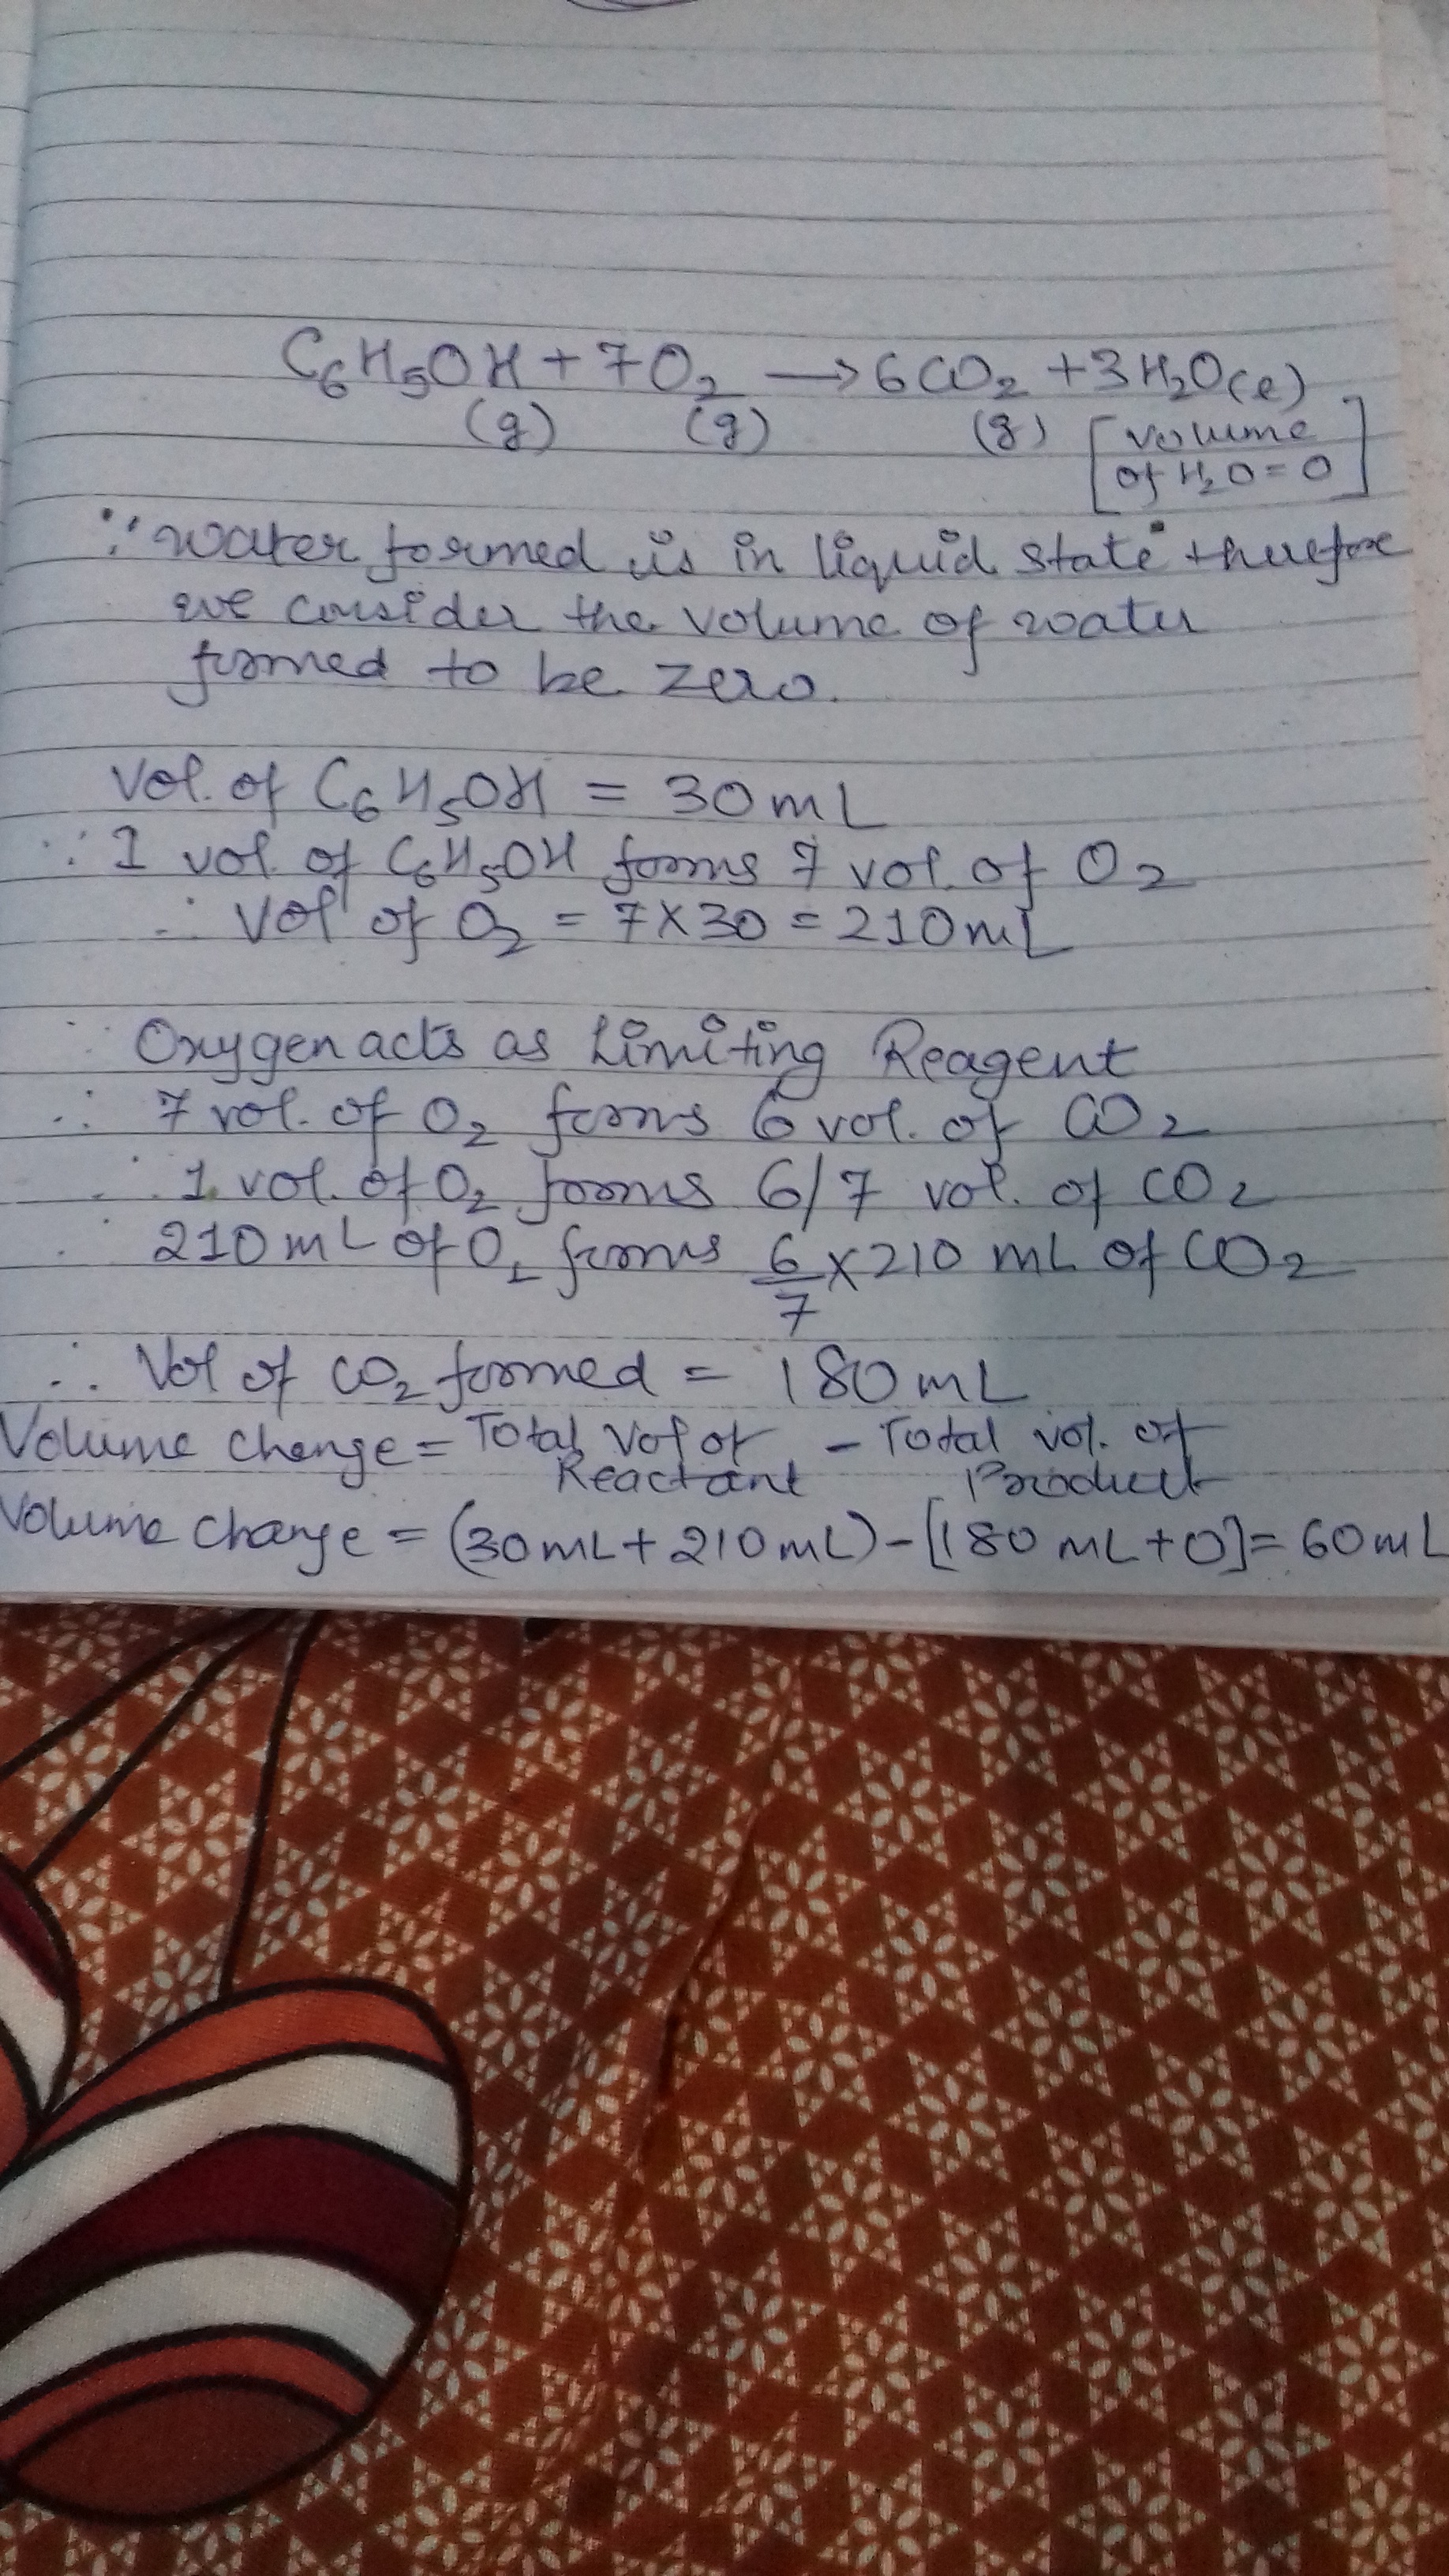 C₆H₅OH + 7O₂ → 6CO₂ + 3H₂O(l)
(g) (g) (g) [volume of H₂O = 0]
∵ water formed is in liquid state therefore
we consider the volume of water
formed to be zero.
Vol. of C₆H₅OH = 30 mL
∵ 1 vol. of C₆H₅OH forms 7 vol. of O₂
∴ Vol of O₂ = 7 X 30 = 210 mL
∵ Oxygen acts as Limiting Reagent
∴ 7 vol. of O₂ forms 6 vol. of CO₂
∴ 1 vol. of O₂ forms 6/7 vol. of CO₂
∴ 210 mL of O₂ forms 6/7 X 210 mL of CO₂
∴ Vol of CO₂ formed = 180 mL
Volume change = Total Vol of Reactant - Total vol. of Product
Volume change = (30 mL + 210 mL) - [180 mL + 0] = 60 mL